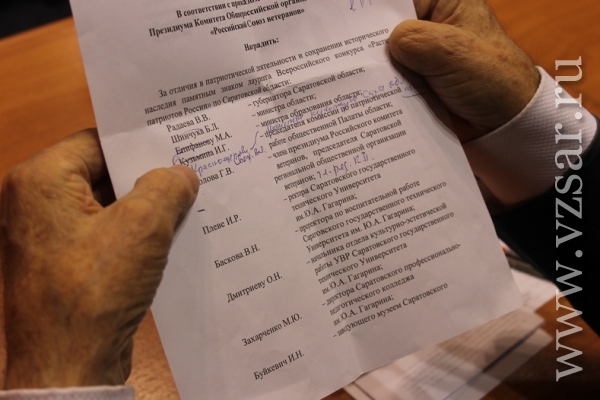 В соответствии с
Президиума Комитета Общероссийской организации
«Российский Союз ветеранов»
Наградить:
За отличия в патриотической деятельности и сохранении исторического
наследия памятным знаком лаурета Всероссийского конкурса «Растим
патриотов России» по Саратовской области:
Радаева В.В. - губернатора Саратовской области;
Шинчука Б.Л. - министра области;
Епифанову М.А. - министра образования области;
Кузьмина И.Г. - председателя комиссии по патриотической
работе общественной Палаты области;
Г.В. - члена президиума Российского комитета
ветеранов, председателя Саратовской
региональной общественной организации
ветеранов;
Плеве И.Р. - ректора Саратовского государственного
технического Университета
им. Ю.А. Гагарина;
Баскова В.Н. - проректора по воспитательной работе
Саровского государственного технического
Университета им. Ю.А. Гагарина;
Дмитриеву О.Н. - начальника отдела культурно-эстетической
работы УВР Саратовского государственного
технического Университета
им. Ю.А. Гагарина;
Захарченко М.Ю. - директора Саратовского профессионально-
педагогического колледжа
им. Ю.А. Гагарина;
Буйкевич И.Н. - заведующего музеем Саратовского
www.vzsar.ru